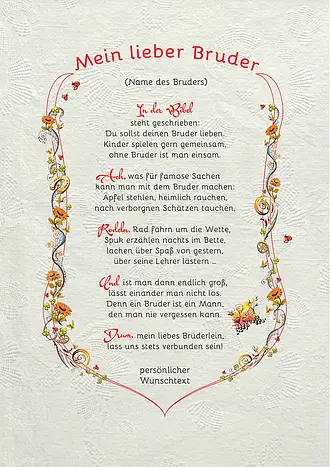 Mein lieber Bruder
(Name des Bruders)
In der Bibel
steht geschrieben:
Du sollst deinen Bruder lieben.
Kinder spielen gern gemeinsam,
ohne Bruder ist man einsam.
Ach, was für famose Sachen
kann man mit dem Bruder machen:
Äpfel stehlen, heimlich rauchen,
nach verborgnen Schätzen tauchen,
Rodeln, Rad fahrn um die Wette,
Spuk erzählen nachts im Bette,
lachen über Spaß von gestern,
über seine Lehrer lästern ...
Und ist man dann endlich groß,
lässt einander man nicht los.
Denn ein Bruder ist ein Mann,
den man nie vergessen kann.
Drum, mein liebes Brüderlein,
lass uns stets verbunden sein!
persönlicher
Wunschtext